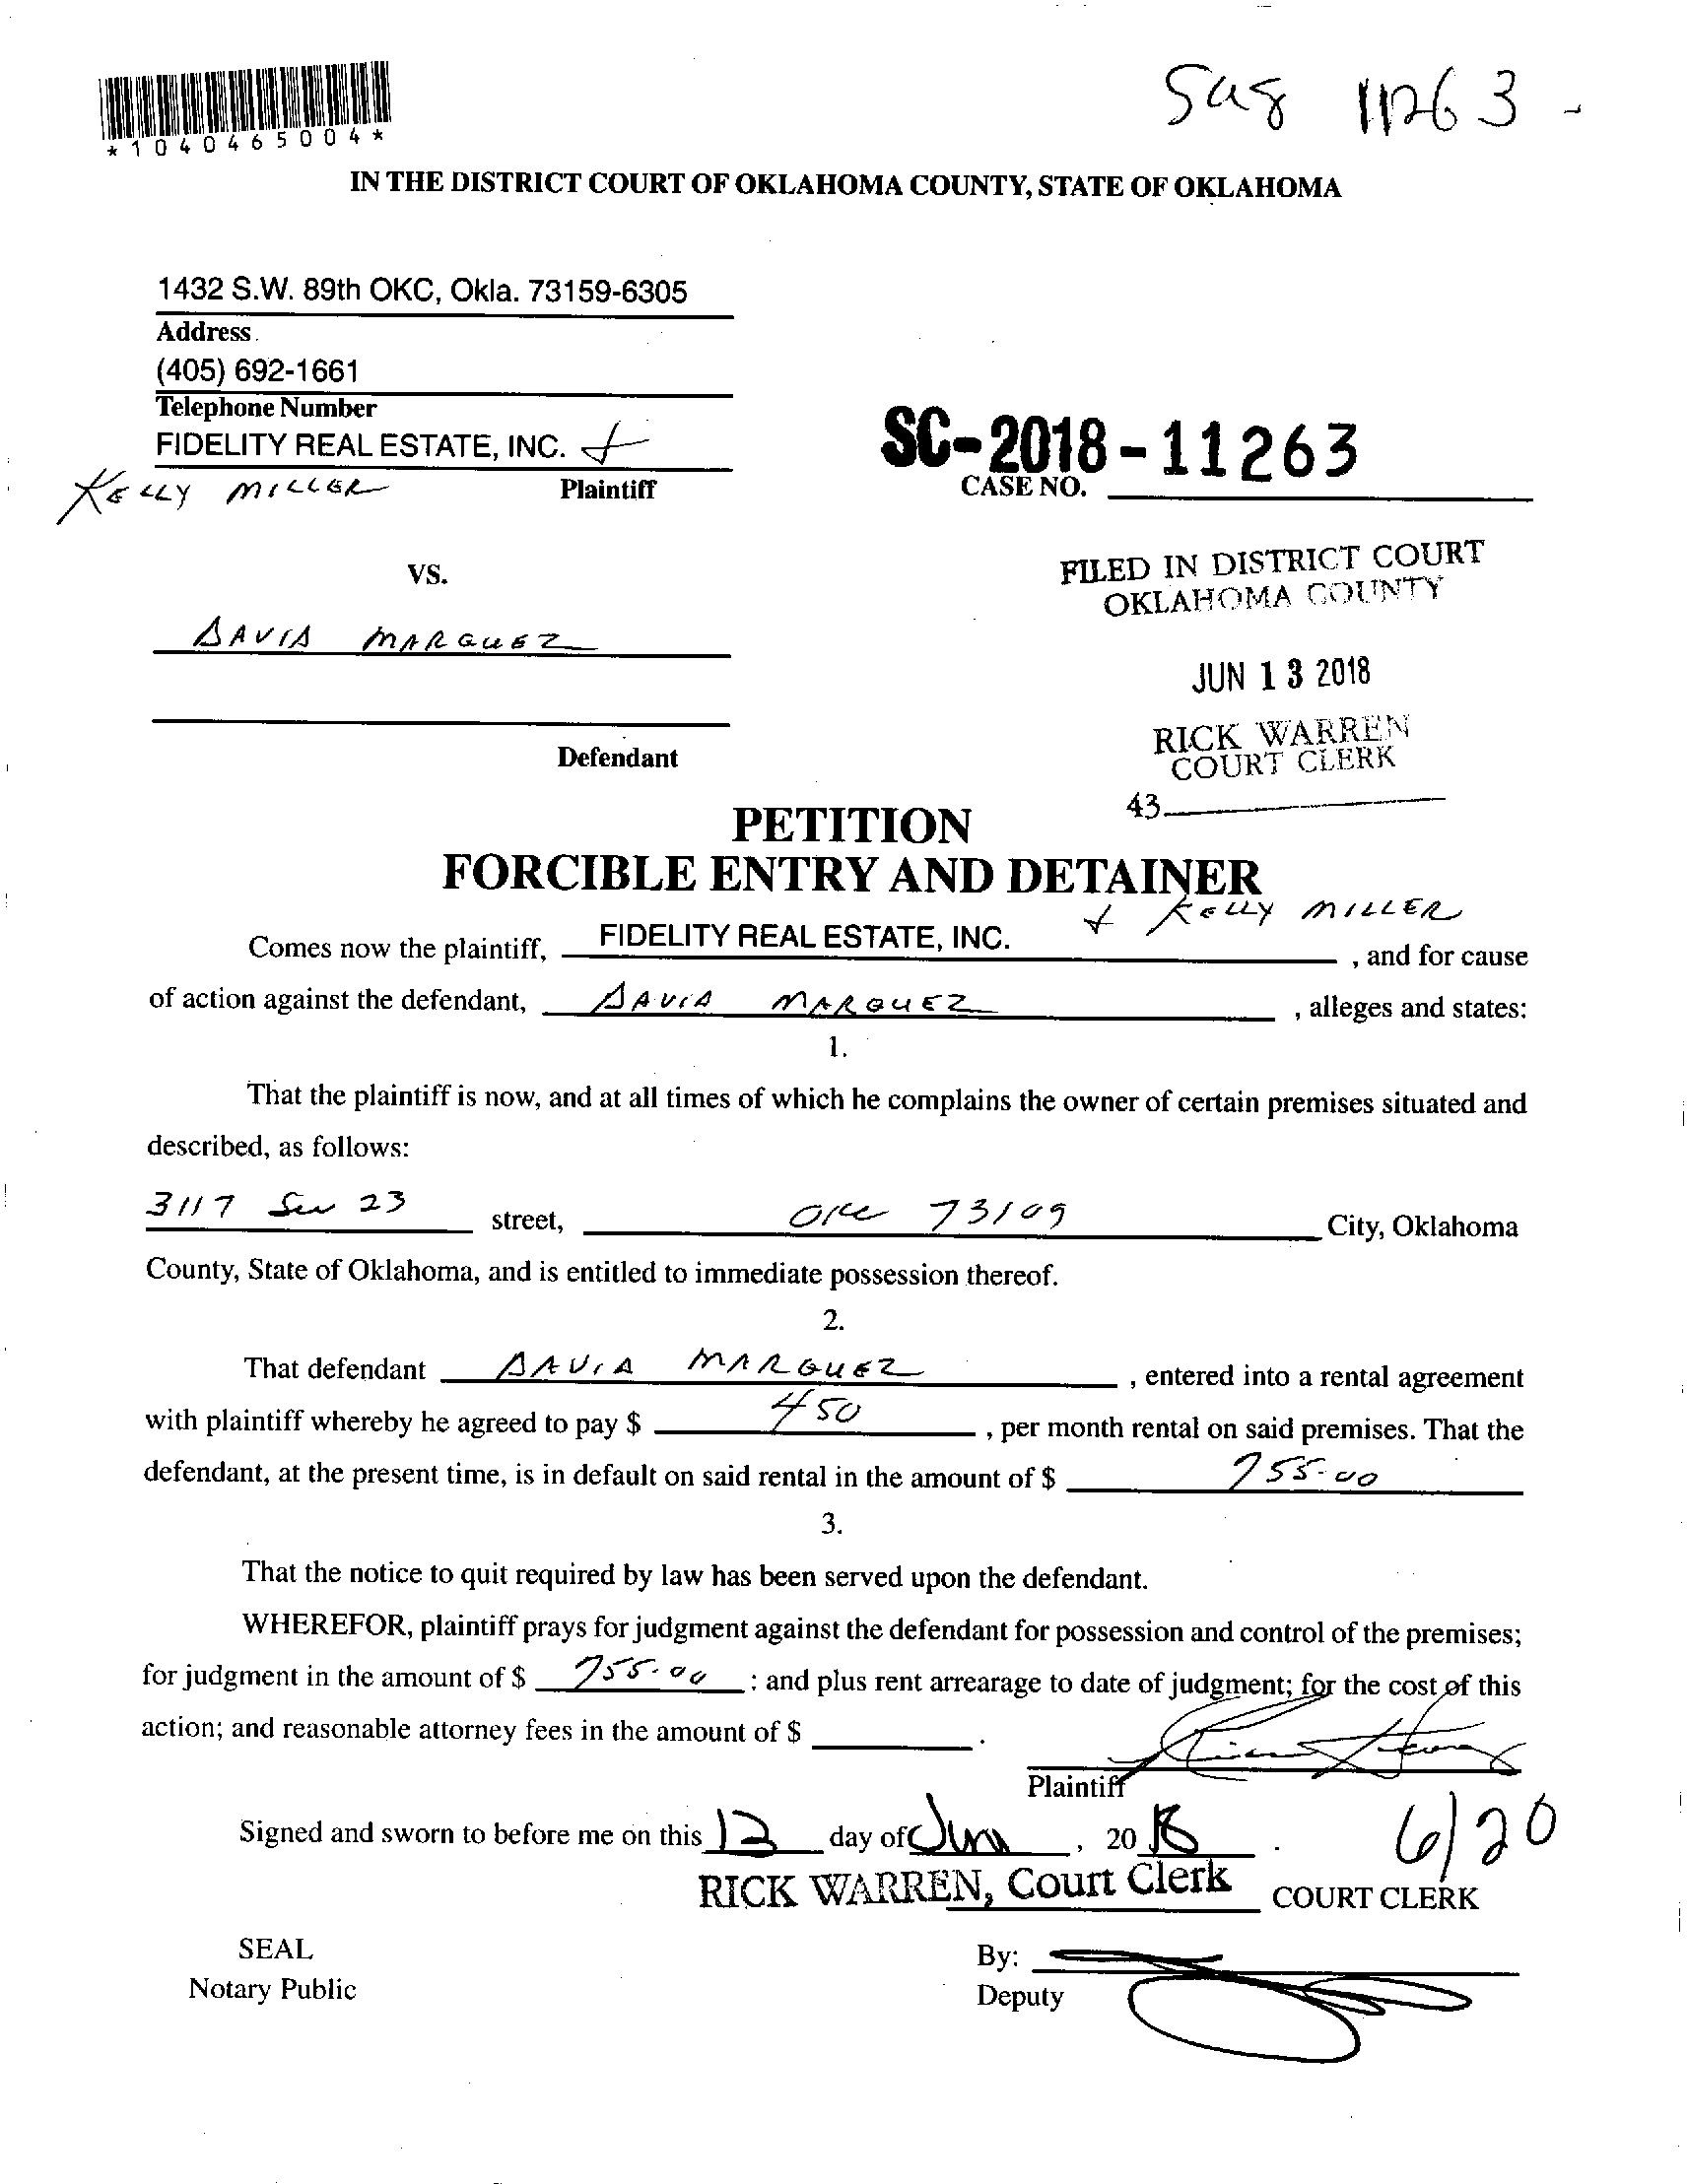 *1040465004*
11263
IN THE DISTRICT COURT OF OKLAHOMA COUNTY, STATE OF OKLAHOMA
1432 S.W. 89th OKC, Okla. 73159-6305
Address
(405) 692-1661
Telephone Number
FIDELITY REAL ESTATE, INC. +
KELLY MILLER Plaintiff
SC-2018-11263
CASE NO.
VS.
FILED IN DISTRICT COURT
OKLAHOMA COUNTY
DAVID MARQUEZ
JUN 13 2018
RICK WARREN
COURT CLERK
Defendant
43
PETITION
FORCIBLE ENTRY AND DETAINER
Comes now the plaintiff, FIDELITY REAL ESTATE, INC. + KELLY MILLER , and for cause
of action against the defendant, DAVID MARQUEZ , alleges and states:
1.
That the plaintiff is now, and at all times of which he complains the owner of certain premises situated and
described, as follows:
3117 SW 23 street, OKC 73109 City, Oklahoma
County, State of Oklahoma, and is entitled to immediate possession thereof.
2.
That defendant DAVID MARQUEZ , entered into a rental agreement
with plaintiff whereby he agreed to pay $ 450 , per month rental on said premises. That the
defendant, at the present time, is in default on said rental in the amount of $ 755.00
3.
That the notice to quit required by law has been served upon the defendant.
WHEREFOR, plaintiff prays for judgment against the defendant for possession and control of the premises;
for judgment in the amount of $ 755.00 : and plus rent arrearage to date of judgment; for the cost of this
action; and reasonable attorney fees in the amount of $ .
Plaintiff
Signed and sworn to before me on this 13 day of Jun , 20 18 .
6/20
RICK WARREN, Court Clerk COURT CLERK
SEAL
Notary Public
By:
Deputy